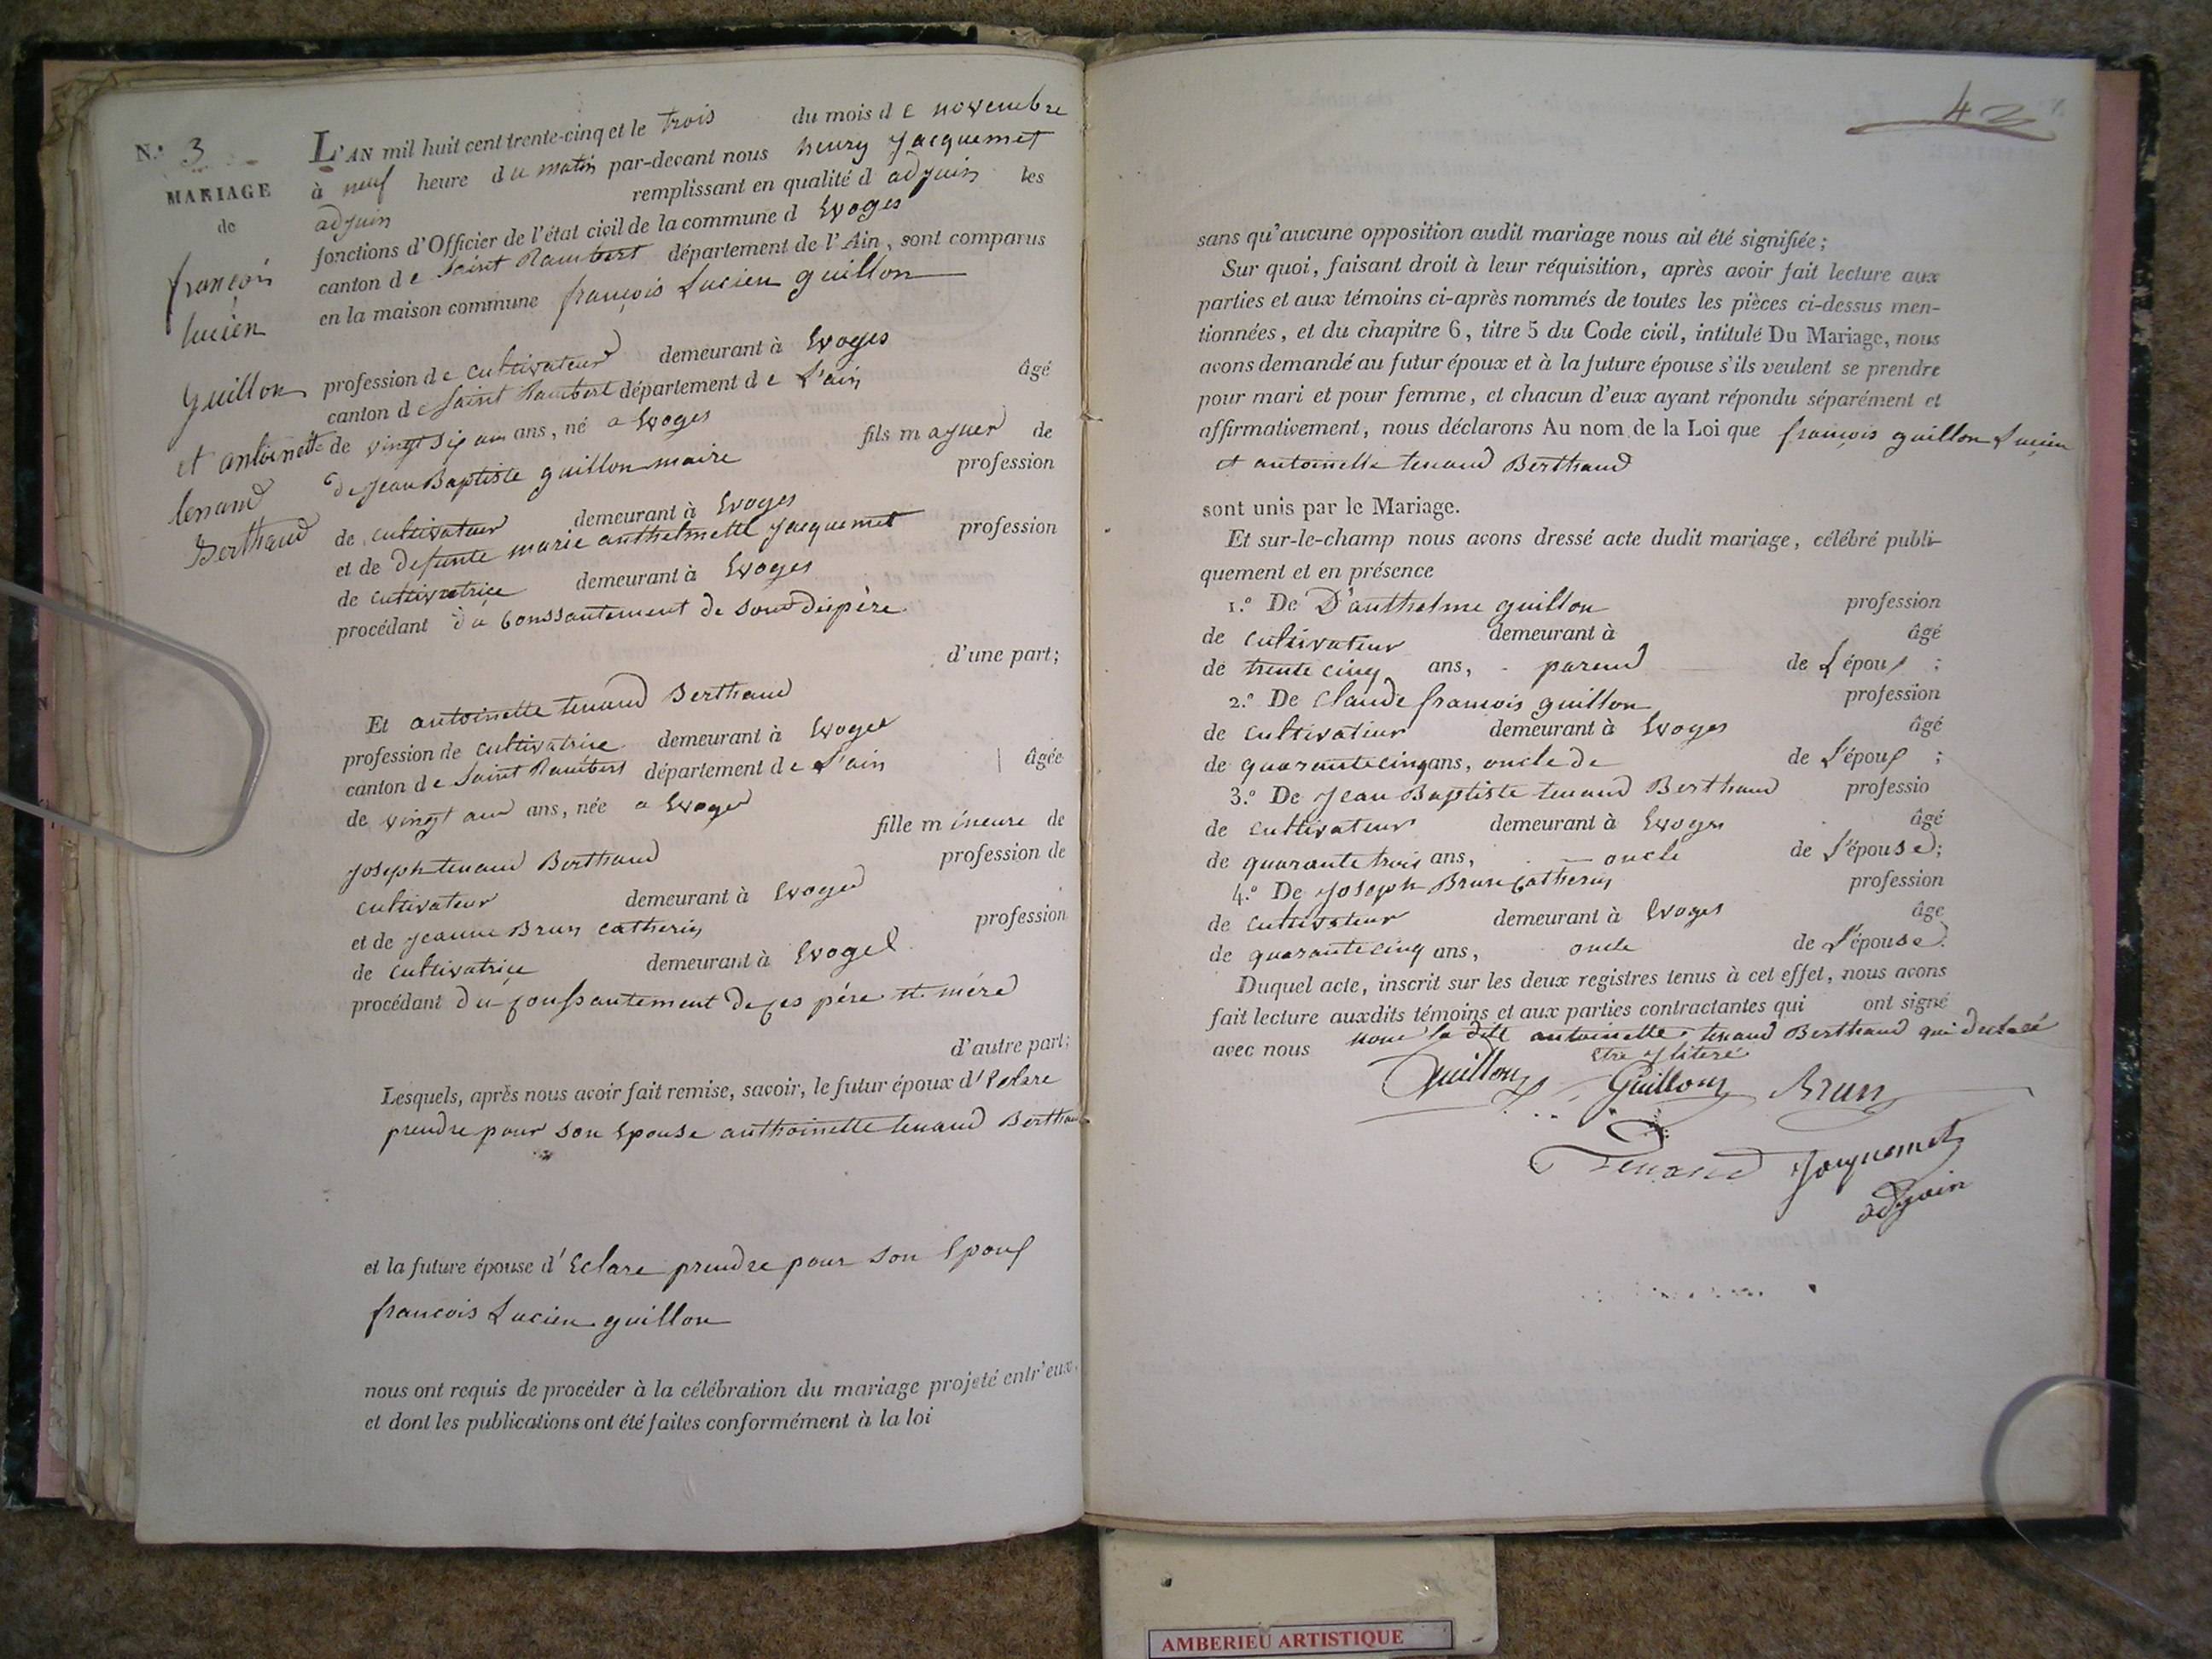 N.° 3
MARIAGE
de
françois
lucien
Guillon
et antoinette
tenand
Berthaud
L'AN mil huit cent trente-cinq et le trois du mois de novembre
à neuf heure du matin par-devant nous henry Jacquemet
adjuin remplissant en qualité d adjuin les
fonctions d'Officier de l'état civil de la commune d Evoges
canton de Saint Rambert département de l'Ain, sont comparus
en la maison commune françois Lucien guillon
profession de cultivateur demeurant à Evoges
canton de Saint Rambert département de L'ain âgé
de vingt six ans, né a Evoges fils majuer de
de Jean Baptiste guillon maire profession
de cultivateur demeurant à Evoges
et de defunte marie anthelmette Jacquemet profession
de cultivatrice demeurant à Evoges
procédant du consantement de père
d'une part;
Et antoinette tenand Berthaud
profession de cultivatrice demeurant à Evoges
canton de Saint Rambert département de L'ain âgée
de vingt ans, née a Evoges
fille mineure de
Joseph tenand Berthaud profession de
cultivateur demeurant à Evoges
et de Jeanne Brun catherin profession
de cultivatrice demeurant à Evoges
procédant du conssantement de ces père et mére
d'autre part;
Lesquels, après nous avoir fait remise, savoir, le futur époux d'Eclare
prendre pour son Epouse anthoinette tenand Berthaud
et la future épouse d'Eclare prendre pour son Epoux
francois Lucien guillon
nous ont requis de procéder à la célébration du mariage projeté entr'eux,
et dont les publications ont été faites conformément à la loi
42
sans qu'aucune opposition audit mariage nous ait été signifiée;
Sur quoi, faisant droit à leur réquisition, après avoir fait lecture aux
parties et aux témoins ci-après nommés de toutes les pièces ci-dessus men-
tionnées, et du chapitre 6, titre 5 du Code civil, intitulé Du Mariage, nous
avons demandé au futur époux et à la future épouse s'ils veulent se prendre
pour mari et pour femme, et chacun d'eux ayant répondu séparément et
affirmativement, nous déclarons Au nom de la Loi que françois guillon Lucien
et antoinette tenand Berthaud
sont unis par le Mariage.
Et sur-le-champ nous avons dressé acte dudit mariage, célébré publi-
quement et en présence
1.° De D'anthelme guillon profession
de cultivateur demeurant à âgé
de trente cinq ans, parend de L'époux ;
2.° De Claude francois guillon profession
de cultivateur demeurant à Evoges âgé
de quarante cinq ans, oncle de de L'époux ;
3.° De Jean Baptiste tenand Berthaud professio
de cultivateur demeurant à Evoges âgé
de quarante trois ans, oncle de L'épouse;
4.° De Joseph Brun Catherin profession
de cultivateur demeurant à Evoges âge
de quarante cinq ans, oncle de L'épouse.
Duquel acte, inscrit sur les deux registres tenus à cet effet, nous avons
fait lecture auxdits témoins et aux parties contractantes qui ont signé
avec nous nom la dite antoinette tenand Berthaud qui declaré
etre yliteré
Guillon Guillon Brun
Tenand Jacquemet
adjuin
AMBERIEU ARTISTIQUE